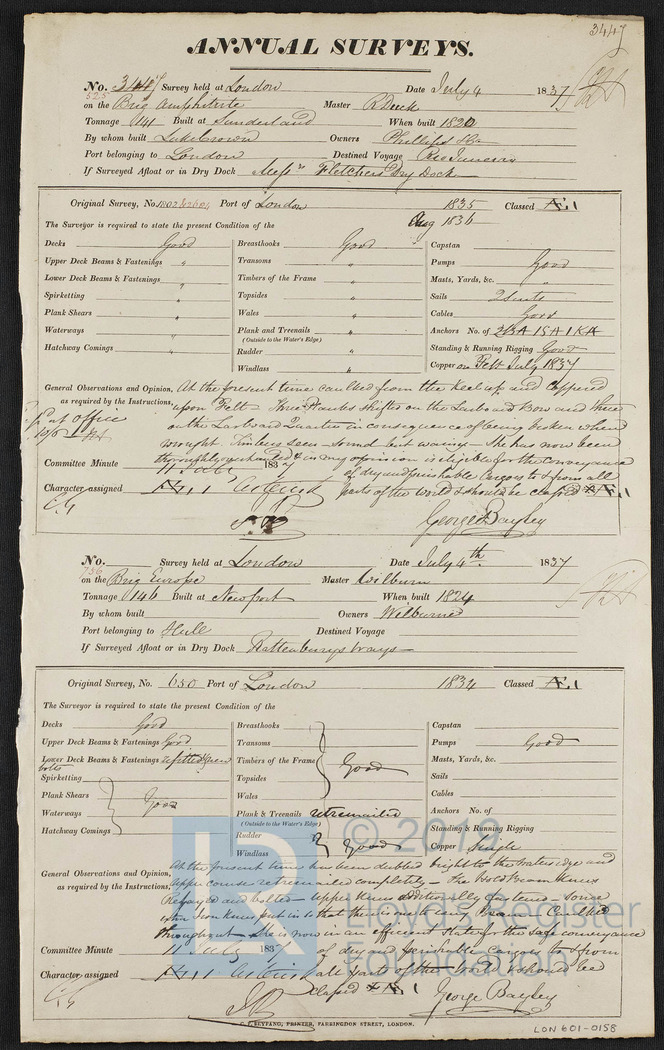 3447
ANNUAL SURVEYS.
No. 3447 Survey held at London Date July 4 1837
525 on the Brig Amphitrite Master R Deuck
Tonnage 141 Built at Sunderland When built 1820
By whom built Luke Crown Owners Phillips & Co
Port belonging to London Destined Voyage Rio Janeiro
If Surveyed Afloat or in Dry Dock Messrs Fletchers Dry Dock
Original Survey, No. Port of London 1835 Classed Æ 1
Aug 1836
The Surveyor is required to state the present Condition of the
Decks Good Breasthooks Good Capstan
Upper Deck Beams & Fastenings " Transoms " Pumps Good
Lower Deck Beams & Fastenings " Timbers of the Frame " Masts, Yards, &c. "
Spirketting " Topsides " Sails 2 Suits
Plank Shears " Wales " Cables Good
Waterways " Plank and Treenails " Anchors No. of 2BA 1SA 1KA
(Outside to the Water's Edge)
Hatchway Comings " Rudder " Standing & Running Rigging Good
Windlass " Copper on Felt July 1837
General Observations and Opinion, At the present time caulked from the keel up and coppered
as required by the Instructions, upon Felt - Three Planks shifted on the Larboard Bow and three
pd at office on the Larboard Quarter in consequence of being broken when
10/6 wrought Timbers seen sound but waney - She has now been
thoroughly overhauled & in my opinion is eligible for the conveyance
Committee Minute 11 July 1837 of dry and perishable cargoes to & from all
Character assigned Æ 1 Asterisk parts of the World & should be classed * Æ 1
George Bayley
No. Survey held at London Date July 4th 1837
736 on the Brig Europe Master Wilburn
Tonnage 146 Built at Newport When built 1824
By whom built Owners Wilburn
Port belonging to Hull Destined Voyage
If Surveyed Afloat or in Dry Dock Rattenburys ways
Original Survey, No. 650 Port of London 1834 Classed Æ 1
The Surveyor is required to state the present Condition of the
Decks Good Breasthooks Capstan
Upper Deck Beams & Fastenings Good Transoms Pumps Good
Lower Deck Beams & Fastenings refitted & new bolts Timbers of the Frame Good Masts, Yards, &c.
Spirketting Topsides Sails
Plank Shears Good Wales Cables
Waterways Plank & Treenails retreenailed Anchors No. of
(Outside to the Water's Edge)
Hatchway Comings Rudder Standing & Running Rigging
Windlass Good Copper Single
General Observations and Opinion, At the present time has been dubbed bright to the waters edge and
as required by the Instructions, upper course retreenailed completely - the Hold Beam Knees
Refayed and bolted - Upper Knees additionally fastened - Some
extra Iron knees put in so that there is one to every Beam - Caulked
throughout - she is now in an efficient state for the safe conveyance
Committee Minute 11 July 1837 of dry and perishable cargoes to & from
Character assigned Æ 1 Asterisk all parts of the World & should be
classed * Æ 1
George Bayley
C. F. SEYFANG, PRINTER, FARRINGDON STREET, LONDON.
LON 601-0158
© 2019
Lloyd's Register
Foundation